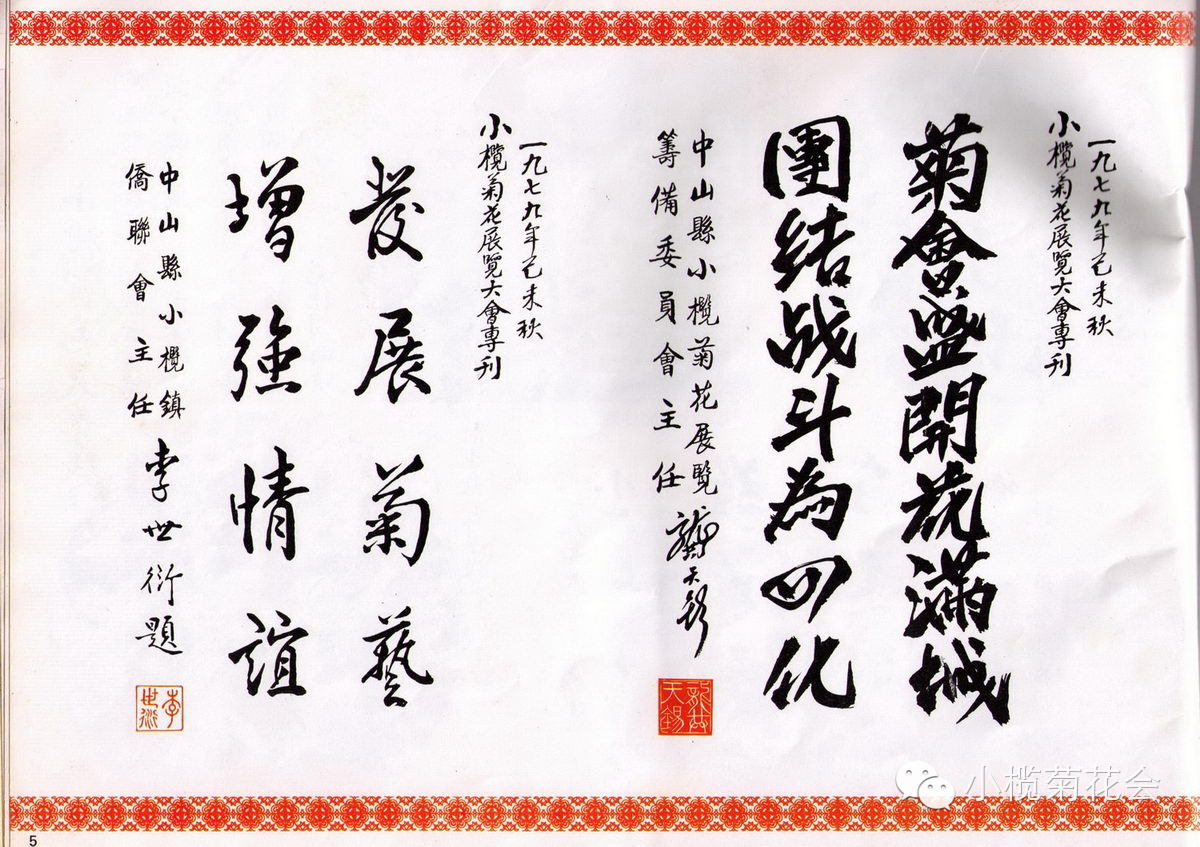 一九七九年己未秋
小欖菊花展覽大會專刊
菊會盛開花滿城
團结战斗為四化
中山縣小欖菊花展覽
籌備委員會主任
龔天錫
龔天錫
一九七九年己未秋
小欖菊花展覽大會專刊
發展菊藝
增強情誼
中山縣小欖鎮
僑聯會主任
李世衍題
李世衍
小榄菊花会
5